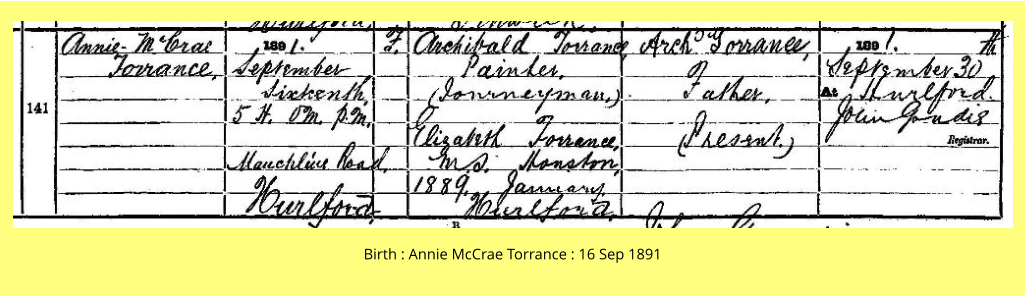 141
Annie McCrae
Torrance,
1891.
September
Sixteenth,
5 H. 0 M. p.m.
Mauchline Road,
Hurlford.
F.
Archibald Torrance,
Painter,
(Journeyman,)
Elizabeth Torrance,
M.S. Houston,
1889. January,
Hurlford.
Archd Torrance,
Father,
(Present.)
1891.
September 30th
At Hurlford.
John
Registrar.
Birth : Annie McCrae Torrance : 16 Sep 1891